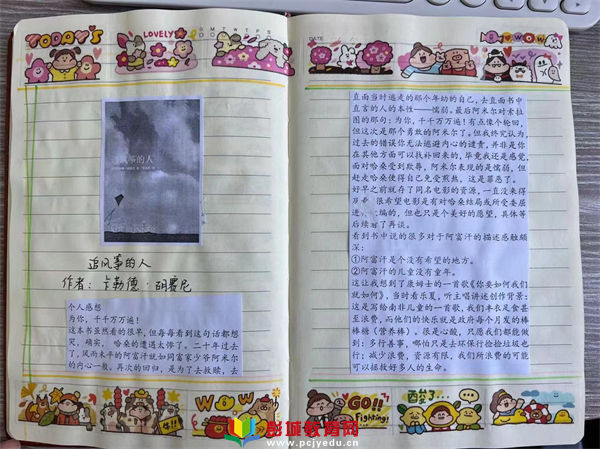 TODAY'S
LOVELY
S M T W T F S
风筝的人
追风筝的人
作者：卡勒德·胡赛尼
个人感想
为你，千千万万遍！
这本书虽然看的很早，但每每看到这句话都想
哭，确实，哈桑的遭遇太惨了。二十年过去
了，风雨未平的阿富汗就如同富家少爷阿米尔
的内心一般。再次的回归，是为了去救赎，去
WOW
DATE
WOW
直面当时逃走的那个年幼的自己，去直面书中
直言的人的本性——懦弱。最后阿米尔对索拉
博的那句：为你，千千万万遍！有点像个轮回，
但这次是那个勇敢的阿米尔了。但我终究认为，
过去的错误你无法逃避内心的谴责，并非是你
在其他方面可以找补回来的，毕竟我还是感觉，
面对哈桑受到欺辱，阿米尔表现的是懦弱，但
赶走哈桑使得自己免受煎熬，这是罪恶了。
好早之前就存了同名电影的资源，一直没来得
很希望电影是有对哈桑结局或所受委屈
编的，但也只是个美好的愿望，具体等
后续看了再谈。
看到书中说的很多对于阿富汗的描述感触颇
深：
①阿富汗是个没有希望的地方。
②阿富汗的儿童没有童年。
这让我想到了康姆士的一首歌《你要如何我们
就如何》，当时看乐夏，听主唱讲述创作背景：
这是写给南非儿童的一首歌，我们丰衣足食甚
至浪费，而他们的快乐就是政府每个月发的棒
棒糖（营养棒）。很是心酸，只愿我们都能做
到：多行善事，哪怕只是去环保行捡捡垃圾也
行；减少浪费，资源有限，我们所浪费的可能
可以拯救好多人的生命。
GO!!
Fighting!
酸了...
彭城教育网
www.pcjyedu.cn